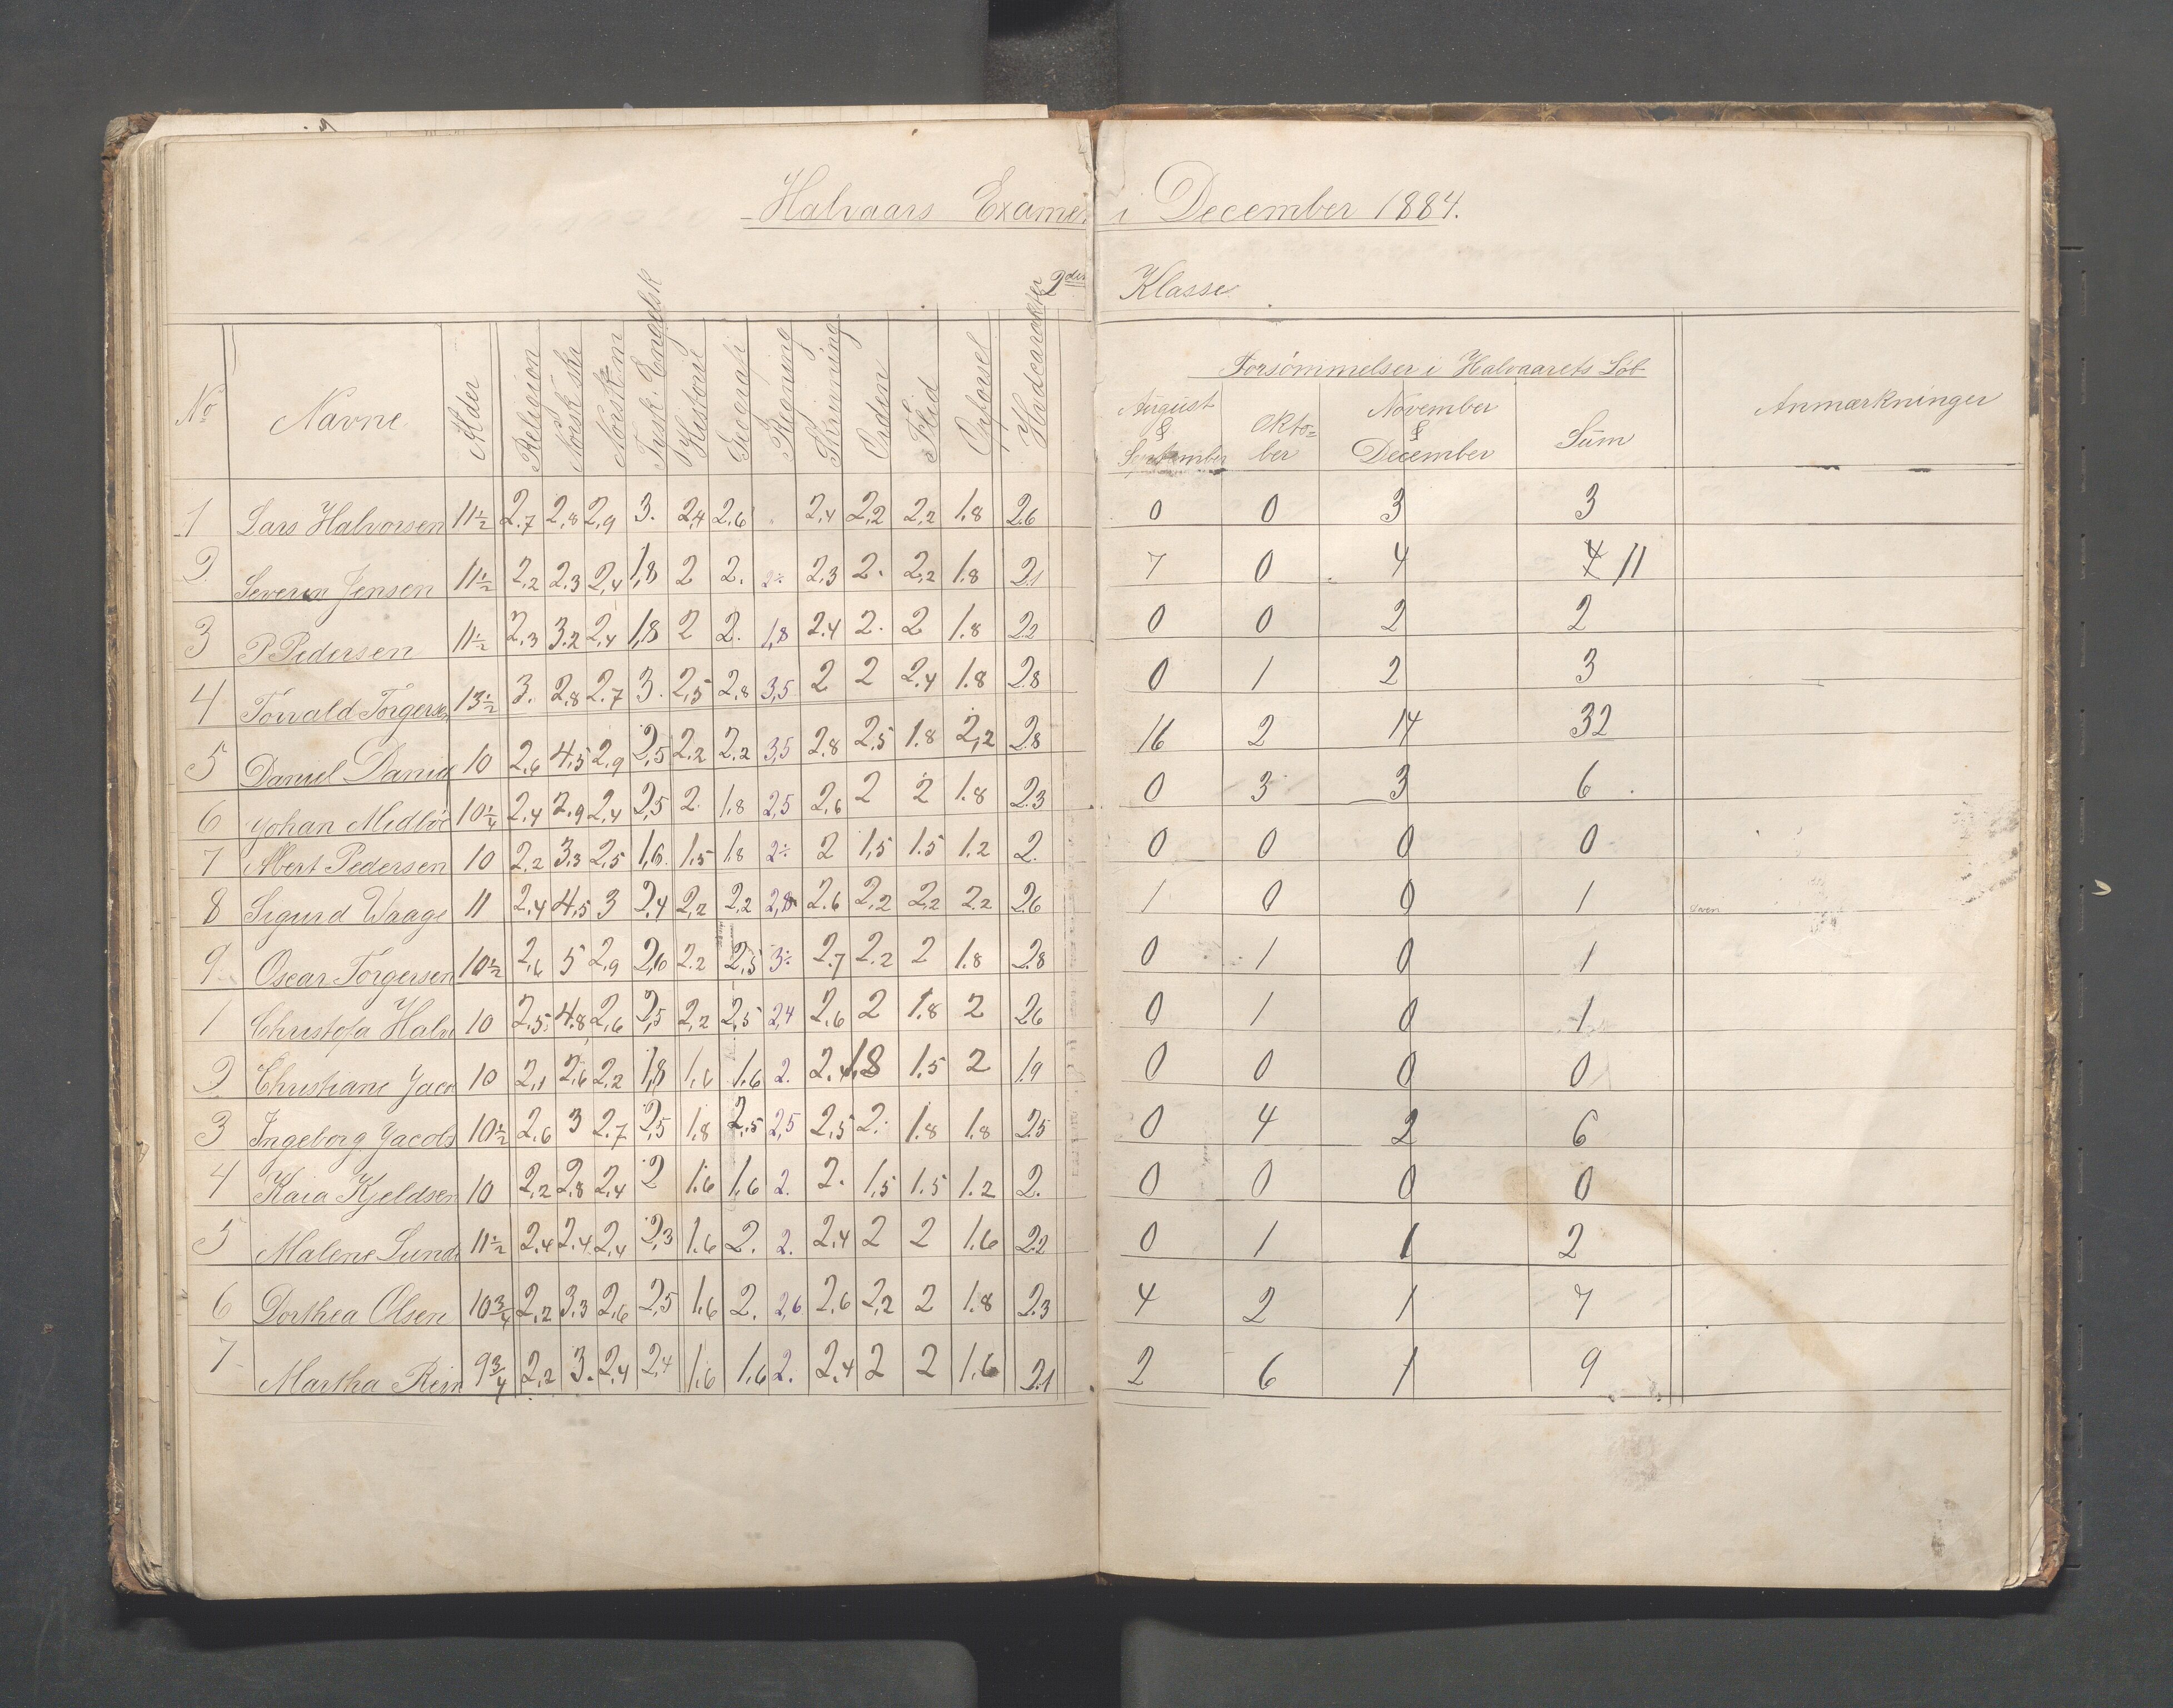 Halvaars Examen i December 1884.
2den Klasse
No Navne Alder Religion Norsk skr Norsk m Tysk. Engelsk Historie Geografi Regning Skrivning Orden Flid Opførsel Hvdcarakter
Forsömmelser i Halvaarets Løb
August & September Oktober November & December Sum Anmærkninger
1 Lars Halvorsen 11½ 2.7 2,8 2,9 3. 2,4 2,6 2,4 2,2 2,2 1.8 2.6 0 0 3 3
2 Severin Jensen 11½ 2,2 2.3 2,4 1,8 2 2. 2÷ 2,3 2. 2,2 1.8 2.1 7 0 4 4 11
3 P Pedersen 11½ 2,3 3.2 2,4 1,8 2 2. 1,8 2.4 2. 2 1.8 2.2 0 0 2 2
4 Torvald Torgersen 13½ 3. 2,8 2.7 3. 2,5 2,8 3,5 2 2 2.4 1.8 2.8 0 1 2 3
5 Daniel Daniel 10 2.6 4,5 2,9 2,5 2.2 2.2 3,5 2.8 2.5 1.8 2,2 2.8 16 2 14 32
6 Johan Medbøe 10¼ 2.4 2,9 2,4 2,5 2. 1,8 2,5 2,6 2 2 1.8 2.3 0 3 3 6
7 Albert Pedersen 10 2,2 3,3 2,5 1,6. 1,5 1.8 2÷ 2 1,5 1.5 1.2 2. 0 0 0 0
8 Sigurd Waage 11 2,4 4,5 3 2,4 2,2 2,2 2,8 2.6 2,2 2,2 2.2 2.6 1 0 0 1
9 Oscar Torgersen 10½ 2,6 5 2,9 2,6 2.2 2,5 3÷ 2.7 2.2 2 1.8 2.8 0 1 0 1
1 Christofa Halv 10 2.5 4.8 2,6 2,5 2,2 2,5 2,4 2.6 2 1.8 2 2.6 0 1 0 1
2 Christiane Jaco 10 2,1 2,6 2,2 1,8 1,6 1.6 2. 2.4 1.8 1.5 2 1.9 0 0 0 0
3 Ingeborg Jacobs 10½ 2.6 3 2.7 2,5 1,8 2,5 2,5 2,5 2. 1.8 1.8 2.5 0 4 2 6
4 Kaia Kjeldsen 10 2,2 2,8 2,4 2 1.6 1,6 2. 2. 1,5 1.5 1.2 2. 0 0 0 0
5 Malene Lunde 11½ 2.4 2.4 2,4 2,3 1.6 2. 2. 2.4 2 2 1.6 2.2 0 1 1 2
6 Dorthea Olsen 10¾ 2,2 3.3 2,6 2,5 1,6 2. 2,6 2,6 2,2 2 1.8 2.3 4 2 1 7
7 Martha Rein 9¾ 2,2 3. 2,4 2,4 1,6 1,6 2. 2.4 2 2 1.6 2.1 2 6 1 9